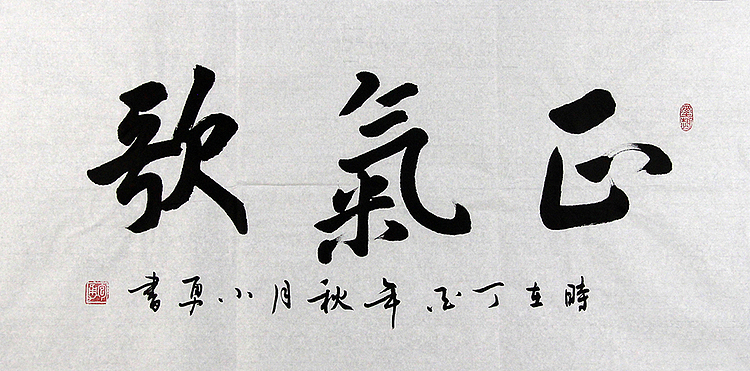 正氣歌
時在丁酉年秋月小勇書